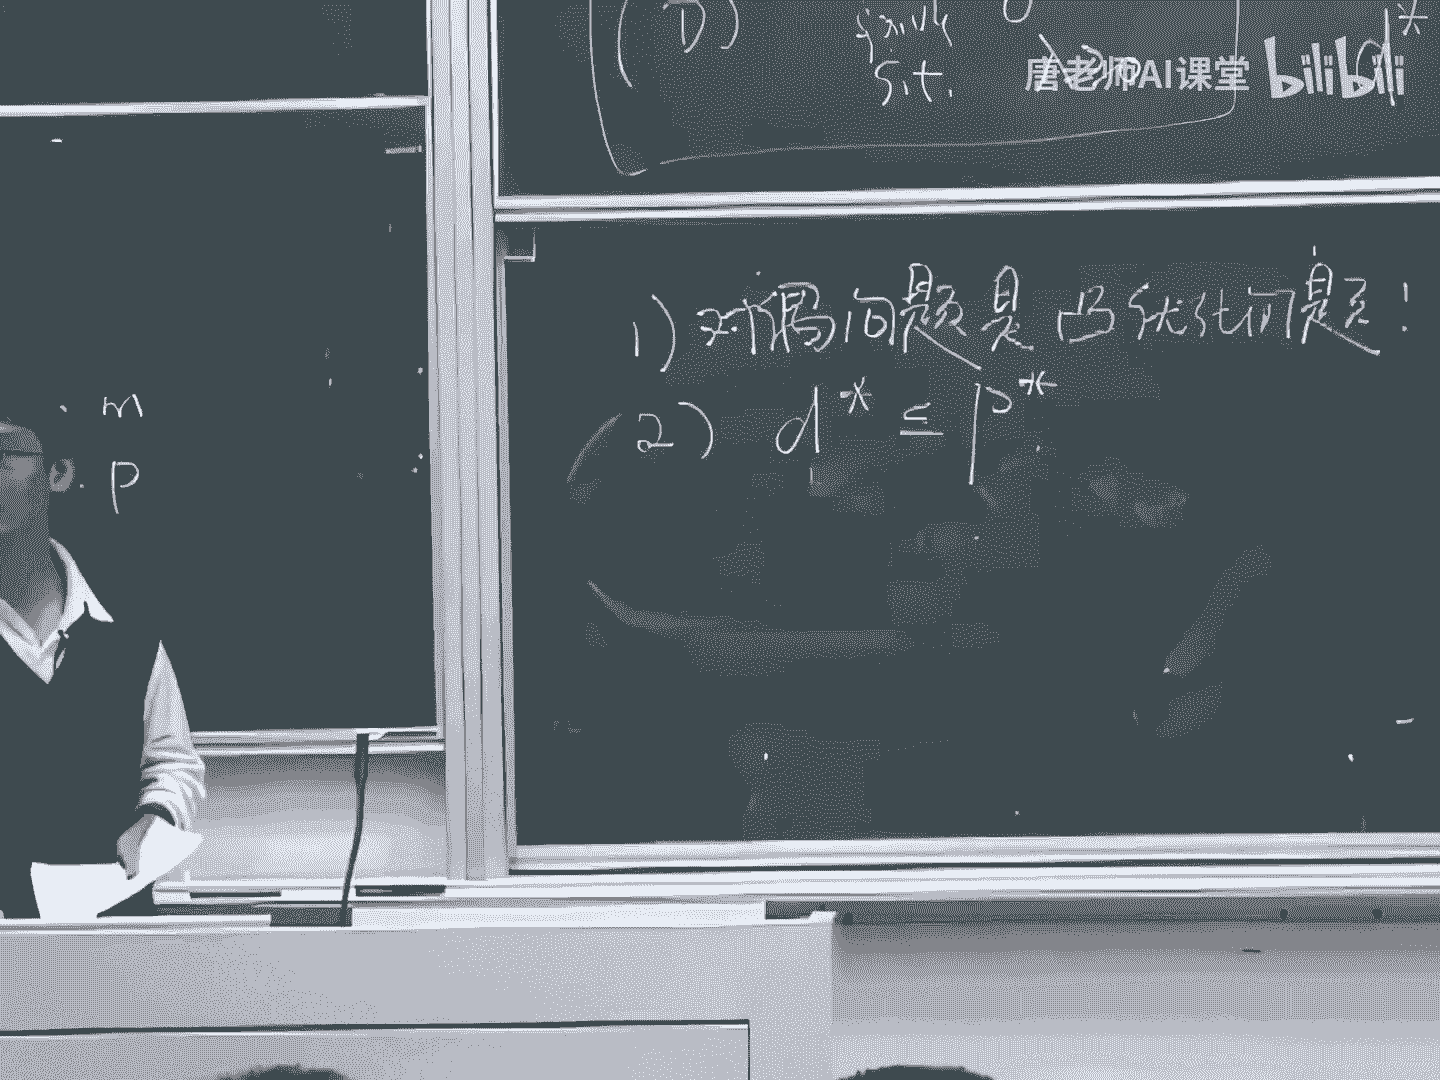 (D)
s.t. λ≥0 d*
唐老师AI课堂 bilibili
m
p
1) 对偶问题是凸优化问题!
(2) d* ≤ p*